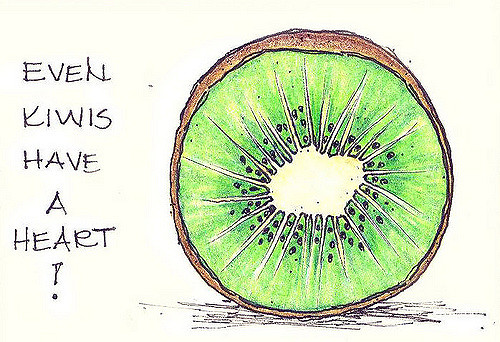 EVEN
KIWIS
HAVE
A
HEART
!